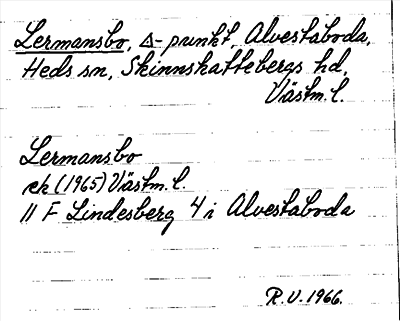 Lermansbo, Δ-punkt, Alvestaboda,
Heds sn, Skinnskattebergs hd,
Västm. l.
Lermansbo
ek (1965) Västm. l.
11 F Lindesberg 4 i Alvestaboda
R.V. 1966.